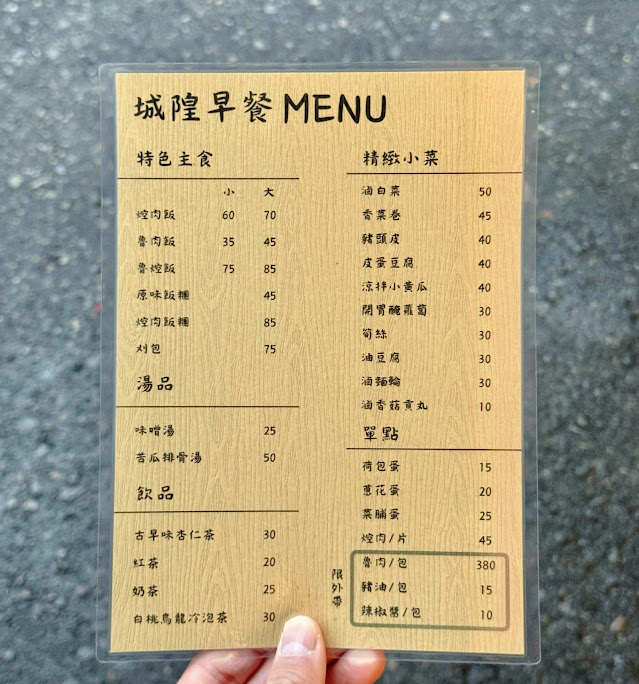 城隍早餐 MENU
特色主食
小 大
焢肉飯 60 70
魯肉飯 35 45
魯焢飯 75 85
原味飯糰 45
焢肉飯糰 85
刈包 75
湯品
味噌湯 25
苦瓜排骨湯 50
飲品
古早味杏仁茶 30
紅茶 20
奶茶 25
白桃烏龍冷泡茶 30
精緻小菜
滷白菜 50
香菜卷 45
豬頭皮 40
皮蛋豆腐 40
涼拌小黃瓜 40
開胃醃蘿蔔 30
筍絲 30
油豆腐 30
滷麵輪 30
滷香菇貢丸 10
單點
荷包蛋 15
蔥花蛋 20
菜脯蛋 25
焢肉/片 45
限外帶
魯肉/包 380
豬油/包 15
辣椒醬/包 10